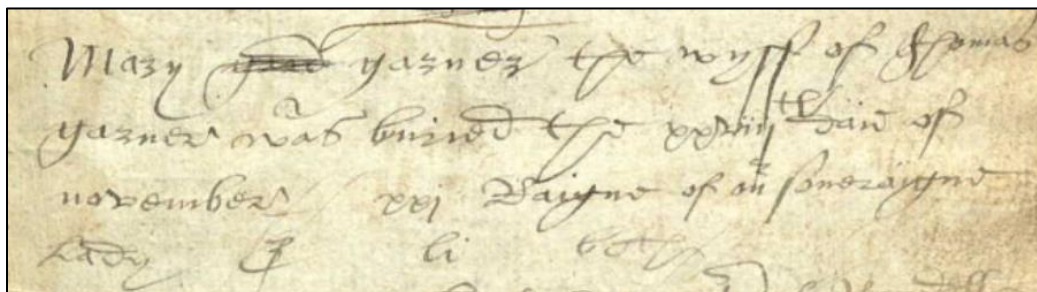 Mary garner the wyff of thomas
garner was buried the xxviijth daie of
november xxj Raigne of our soveraigne
Lady li